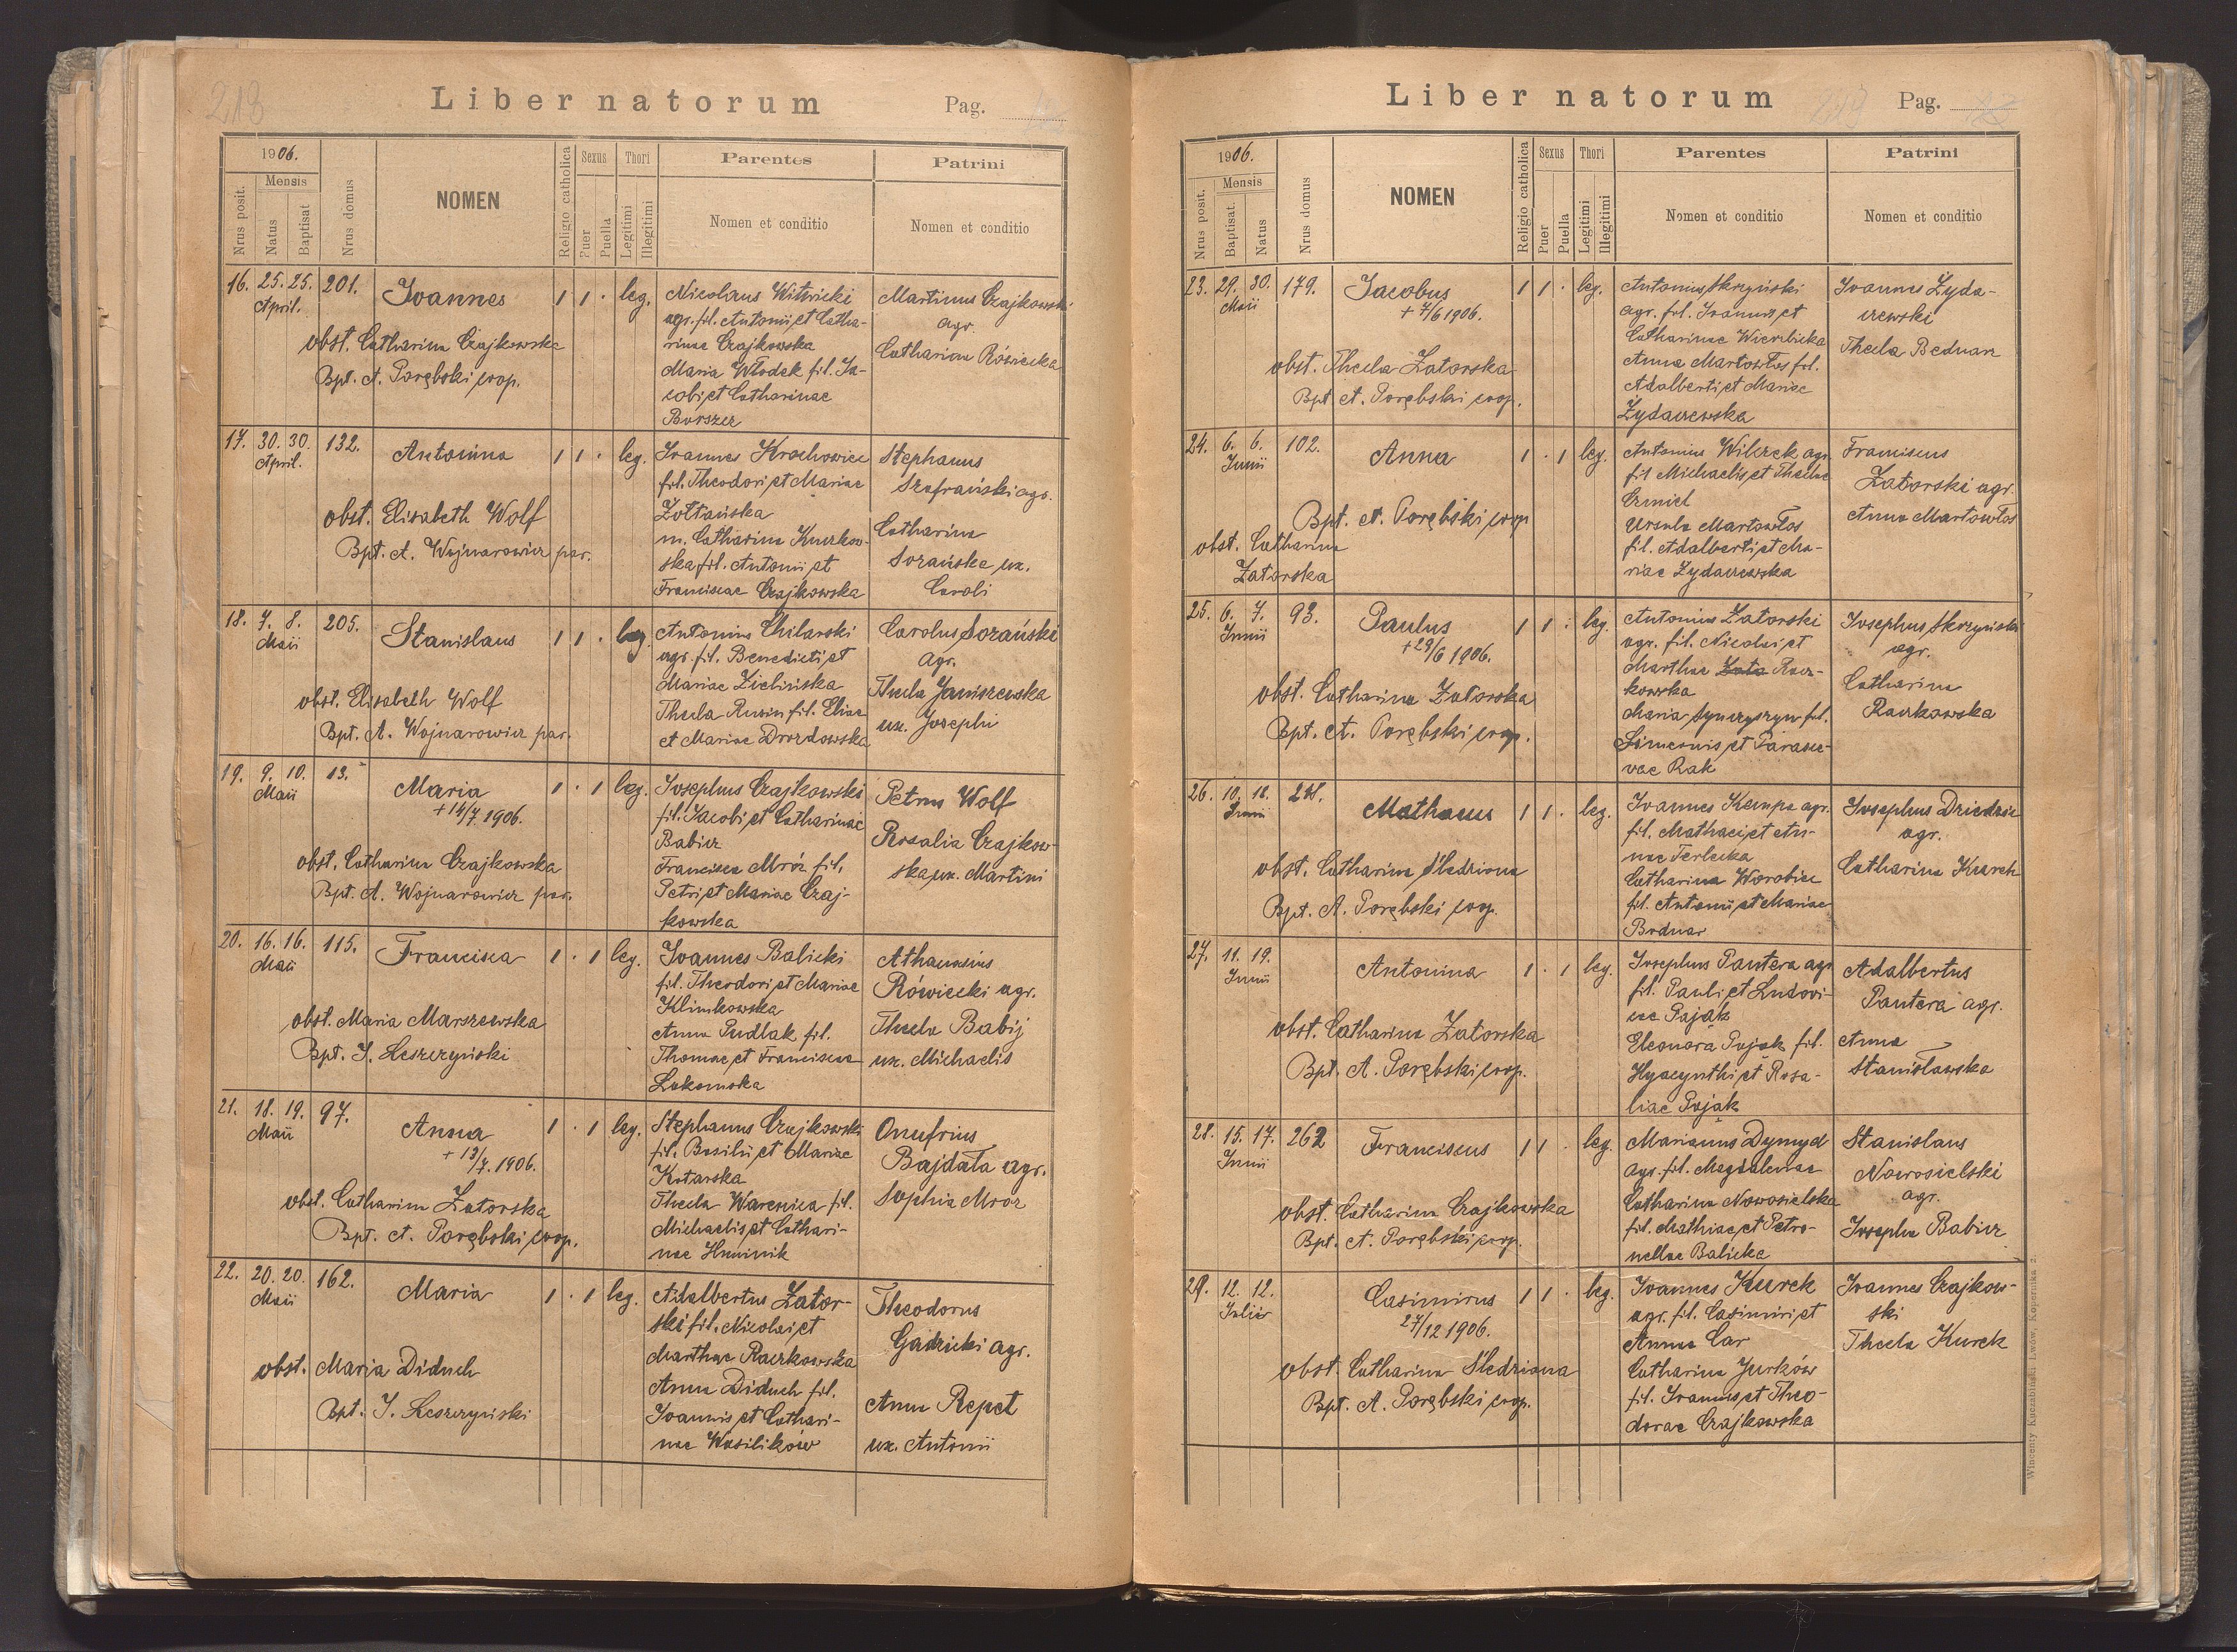 218
Liber natorum
Pag.
1906.
Mensis
Nrus posit.
Natus
Baptisat
Nrus domus
NOMEN
Religio catholica
Sexus
Puer
Puella
Thori
Legitimi
Illegitimi
Parentes
Nomen et conditio
Patrini
Nomen et conditio
16. 25. 25. 201. Joannes 1 1 · leg.
April.
obst. Catharina Czajkowska
Bpt. A. Porębski coop.
Nicolaus Witwicki
agr. fil. Antonii et Catha-
rinae Czajkowska
Maria Włodek fil. Ja-
cobi et Catharinae
Borszcz
Martinus Czajkowski
agr.
Catharina Rówicka
17. 30. 30. 132. Antonina 1 1 · leg.
April.
obst. Elisabeth Wolf
Bpt. A. Wojnarowicz par.
Joannes Krochowiec
fil. Theodori et Mariae
Żołtańska
m. Catharina Kuczkow-
ska fil. Antonii et
Franciscae Czajkowska
Stephanus
Szafrański agr.
Catharina
Sorańska ux.
Caroli
18. 7. 8. 205. Stanislaus 1 1 · leg.
Maii
obst. Elisabeth Wolf
Bpt. A. Wojnarowicz par.
Antonius Chilarski
agr. fil. Benedicti et
Mariae Zielińska
Thecla Rusin fil. Eliae
et Mariae Drozdowska
Carolus Sorański
agr.
Thecla Janiszewska
ux. Josephi
19. 9. 10. 13. Maria 1 · 1 leg.
Maii
+ 14/7 1906.
obst. Catharina Czajkowska
Bpt. A. Wojnarowicz par.
Josephus Czajkowski
fil. Jacobi et Catharinae
Babicz
Francisca Mróz fil.
Petri et Mariae Czaj-
kowska
Petrus Wolf
Rosalia Czajkow-
ska ux. Martini
20. 16. 16. 115. Francisca 1 · 1 leg.
Maii
obst. Maria Marszewska
Bpt. J. Leszczyński
Joannes Balicki
fil. Theodori et Mariae
Klimkowska
Anna Pudlak fil.
Thomae et Franciscae
Łokomska
Athanasius
Rówicki agr.
Thecla Babij
ux. Michaelis
21. 18. 19. 97. Anna 1 · 1 leg.
Maii
+ 13/7. 1906.
obst. Catharina Zatorska
Bpt. A. Porębski coop.
Stephanus Czajkowski
fil. Basilii et Mariae
Kotarska
Thecla Warenica fil.
Michaelis et Cathari-
nae Huminik
Onufrius
Bajdała agr.
Sophia Mroz
22. 20. 20. 162. Maria 1 · 1 leg.
Maii
obst. Maria Diduch
Bpt. J. Leszczyński
Adalbertus Zator-
ski fil. Nicolai et
Marthae Raczkowska
Anna Diduch fil.
Joannis et Cathari-
nae Wasilików
Theodorus
Gadzicki agr.
Anna Repet
ux. Antonii
Liber natorum
219
Pag.
1906.
Mensis
Nrus posit.
Baptisat.
Natus
Nrus domus
NOMEN
Religio catholica
Sexus
Puer
Puella
Thori
Legitimi
Illegitimi
Parentes
Nomen et conditio
Patrini
Nomen et conditio
23. 29. 30. 179. Jacobus 1 1 · leg.
Maii
+ 7/6 1906.
obst. Thecla Zatorska
Bpt A. Porębski coop.
Antonius Skrzyński
agr. fil. Joannis et
Catharinae Wierzbicka
Anna Martowłos fil.
Adalberti et Mariae
Żydaczewska
Joannes Żyda-
czewski
Thecla Bednarz
24. 6. 6. 102. Anna 1 · 1 leg.
Junii
Bpt. A. Porębski coop
obst. Catharina
Zatorska
Antonius Wilczek agr.
fil Michaelis et Theclae
Czmiel
Ursula Martowłos
fil. Adalberti et Ma-
riae Zydaczewska
Franciscus
Zatorski agr.
Anna Martowłos
25. 6. 7. 93. Paulus 1 1 · leg.
Junii
+ 29/6 1906.
obst. Catharina Zatorska
Bpt. A. Porębski coop.
Antonius Zatorski
agr. fil. Nicolai et
Marthae Zato Racz-
kowska
Maria Synczyszyn fil.
Simeonis et Parasce-
vae Rak
Josephus Skrzyński
agr.
Catharina
Raczkowska
26. 10. 18. Mathaeus 1 1 · leg.
Junii
obst. Catharina Śledziona
Bpt. A. Porębski coop.
Joannes Kempa agr.
fil. Mathaei et An-
nae Terlecka
Catharina Worobiec
fil. Antonii et Mariae
Bodnar
Josephus Dziedzic
agr.
Catharina Kurek
27. 11. 19. Antonina 1 · 1 leg.
Junii
obst. Catharina Zatorska
Bpt. A. Porębski coop.
Josephus Pantera agr
fil. Pauli et Ludovi-
cae Pająk
Eleonora Pająk fil.
Hyacynthi et Rosa-
liae Pająk
Adalbertus
Pantera agr.
Anna
Stanisławska
28. 15. 17. 262 Franciscus 1 1 · leg.
Junii
obst. Catharina Czajkowska
Bpt. A. Porębski coop.
Marianus Dymyd
agr. fil. Magdalenae
Catharina Nowosielska
fil. Mathiae et Petro-
nellae Balicka
Stanislaus
Nowosielski
agr.
Josepha Babicz
29. 12. 12. Casimirus 1 1 · leg.
Julii
27/12 1906.
obst. Catharina Śledziona
Bpt. A. Porębski coop.
Joannes Kurek
agr. fil. Casimiri et
Annae Car
Catharina Jurków
fil. Joannis et Theo-
dorae Czajkowska
Joannes Czajkow-
ski
Thecla Kurek
Wincenty Kuczabiński Lwów, Kopernika 2.